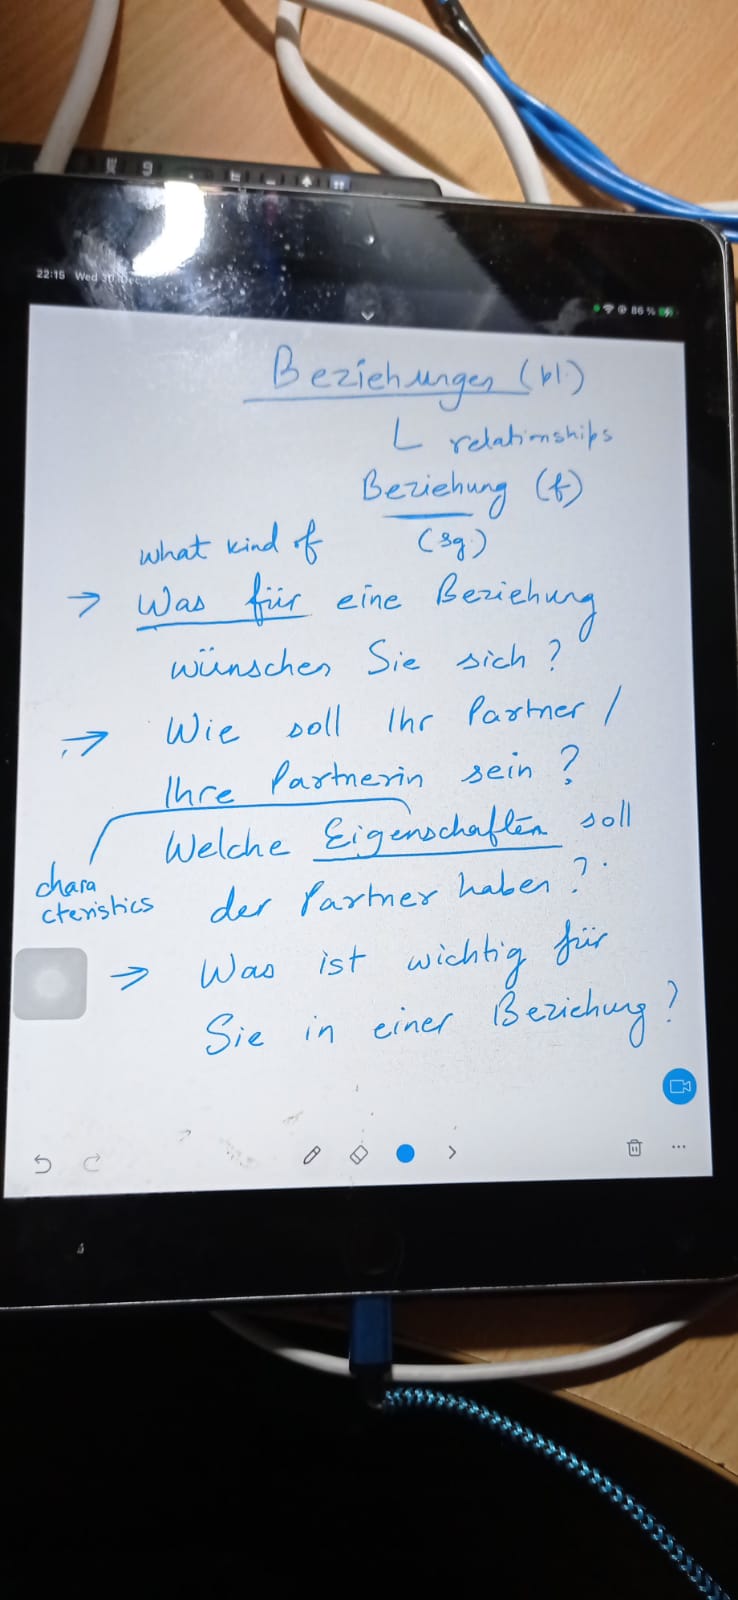 22:15 Wed 30 Dec
86 %
Beziehungen (pl.)
relationships
Beziehung (f)
(sg.)
what kind of
→ Was für eine Beziehung
wünschen Sie sich ?
→ Wie soll Ihr Partner /
Ihre Partnerin sein ?
Welche Eigenschaften soll
chara
cteristics
der Partner haben ?
→ Was ist wichtig für
Sie in einer Beziehung ?